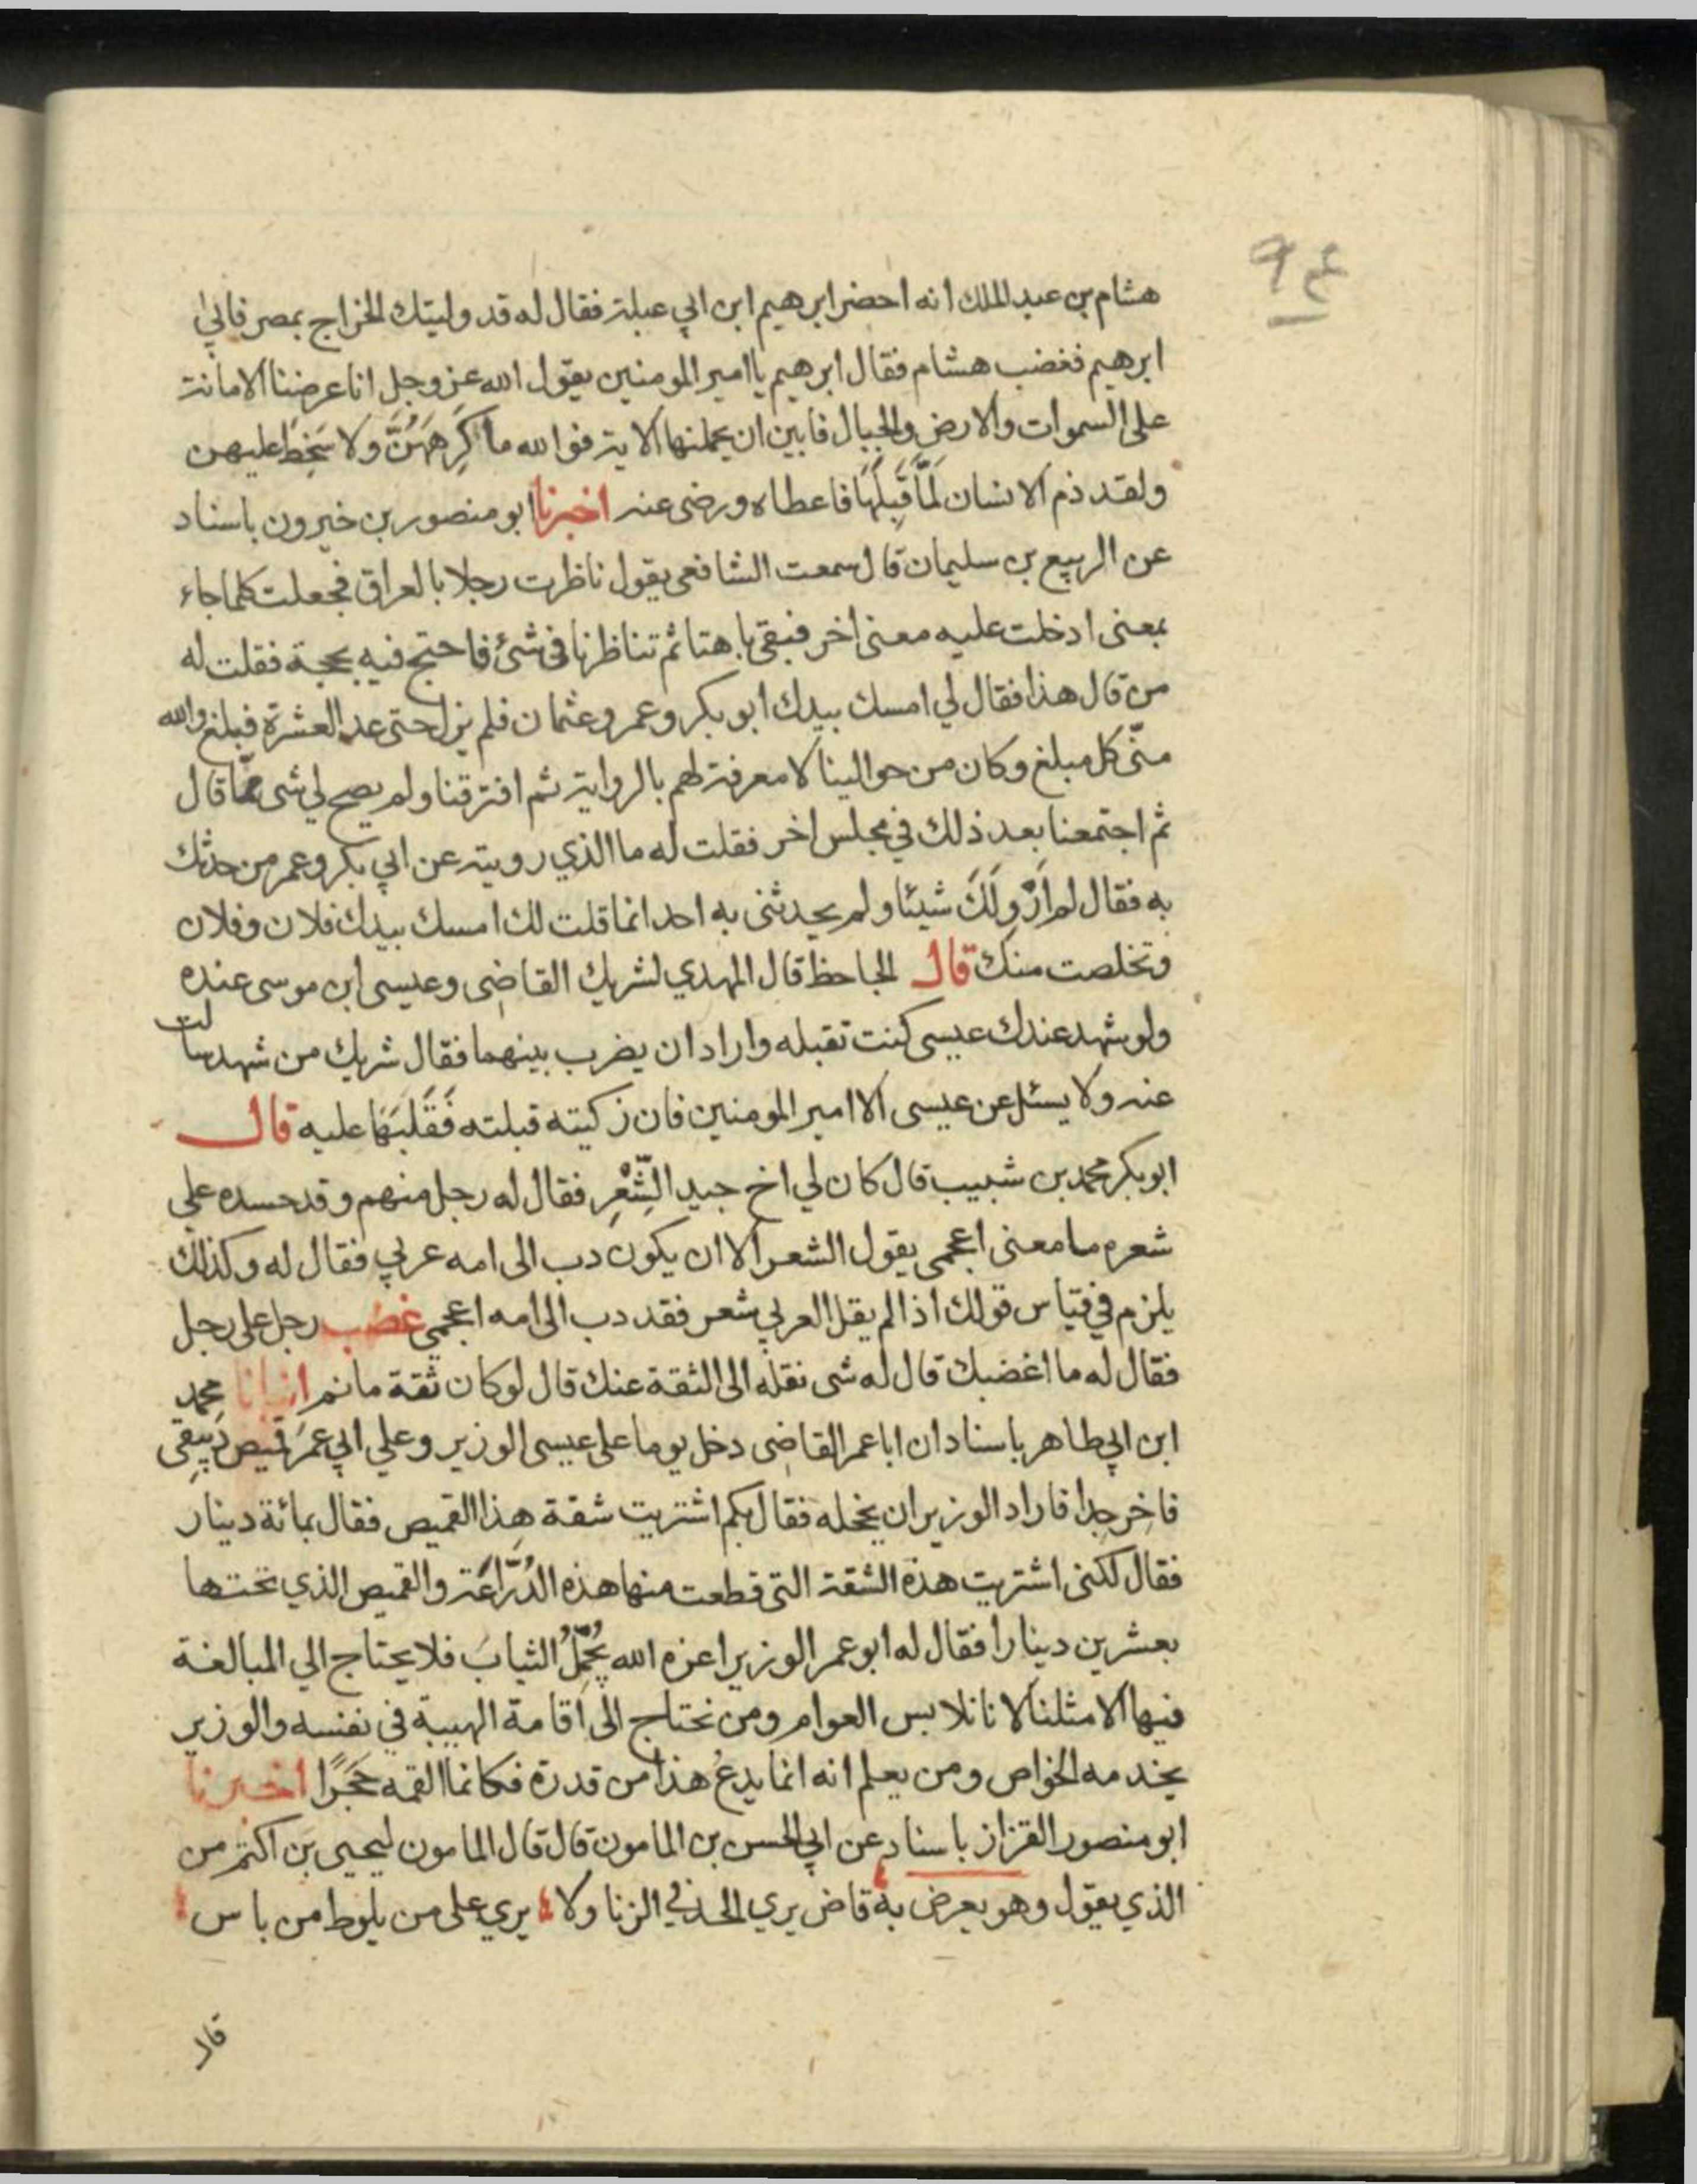 ٩٤
هشام بن عبد الملك انه احضر ابرهيم ابن ابي عبلة فقال له قد وليتك الخراج بمصر فابي
ابرهيم فغضب هشام فقال ابرهيم يا امير المومنين يقول الله عز وجل انا عرضنا الامانة
على السموات والارض والجبال فابين ان يحملنها الا يترفوا لله ما كَرِهَهُنَّ ولا سَخِطَ عليهن
ولقد ذم الانسان لَمَّا قَبِلَهَا فاعطاه ورضى عنه اخبرنا ابو منصور بن خيرون باسناد
عن الربيع بن سليمان قال سمعت الشافعى يقول ناظرت رجلا بالعراق فجعلت كلما جاء
بمعنى ادخلت عليه معنى اخر فبقى باهتا ثم تناظرنا فى شئ فاحتج فيه بحجة فقلت له
من قال هذا فقال لي امسك بيدك ابو بكر وعمر وعثمان فلم يزل حتى عد العشرة فبلغ والله
منّى كل مبلغ وكان من حوالينا لا معرفة لهم بالرواية ثم افترقنا ولم يصح لي شى ممّا قال
ثم اجتمعنا بعد ذلك في مجلس اخر فقلت له ما الذي رويته عن ابي بكر وعمر من حدثك
به فقال لم اَرْوِ لَكَ شيئا ولم يحدثنى به احد انما قلت لك امسك بيدك فلان وفلان
وتخلصت منك قال الجاحظ قال المهدي لشريك القاضى وعيسى ابن موسى عنده
ولو شهد عندك عيسى كنت تقبله واراد ان يضرب بينهما فقال شريك من شهد سالت
عنه ولا يسئل عن عيسى الا امير المومنين فان زكيته قبلته فَقَلَبَهَا عليه قال
ابو بكر محمد بن شبيب قال كان لي اخ جيد الشِّعْرِ فقال له رجل منهم وقد حسده على
شعره ما معنى اعجمى يقول الشعر الا ان يكون دب الى امه عربي فقال له وكذلك
يلزم في قياس قولك اذا لم يقل العربي شعر فقد دب الى امه اعجمي غضب رجل على رجل
فقال له ما اغضبك قال له شى نقله الى الثقة عنك قال لو كان ثقة ما نم انبانا محمد
ابن ابي طاهر باسناد ان ابا عمر القاضى دخل يوما على عيسى الوزير وعلي ابي عمرَ قميص دَبيقى
فاخِر جدا فاراد الوزير ان يخجله فقال بكم اشتريت شقة هذا القميص فقال بمائة دينار
فقال لكنى اشتريت هذة الشقة التى قطعت منها هذه الدُّرّاعَة والقميص الذي تحتها
بعشرين دينارا فقال له ابو عمر الوزير اعزه الله يُجَمِّلُ الثيابَ فلا يحتاج الي المبالغة
فيها الا مثلنا لا نا نلابس العوام ومن نحتاج الى اقامة الهيبة في نفسه والوزير
يخدمه الخواص ومن يعلم انه انما يدعُ هذا من قدرة فكانما القمه حَجَرًا اخبرنا
ابو منصور القزاز باسناد عن ابي الحسن بن المامون قال قال المامون ليحيى بن اكثم من
الذي يقول وهو يعرض به قاض يري الحد في الزنا ولا يري على من يلوط من باس
قال